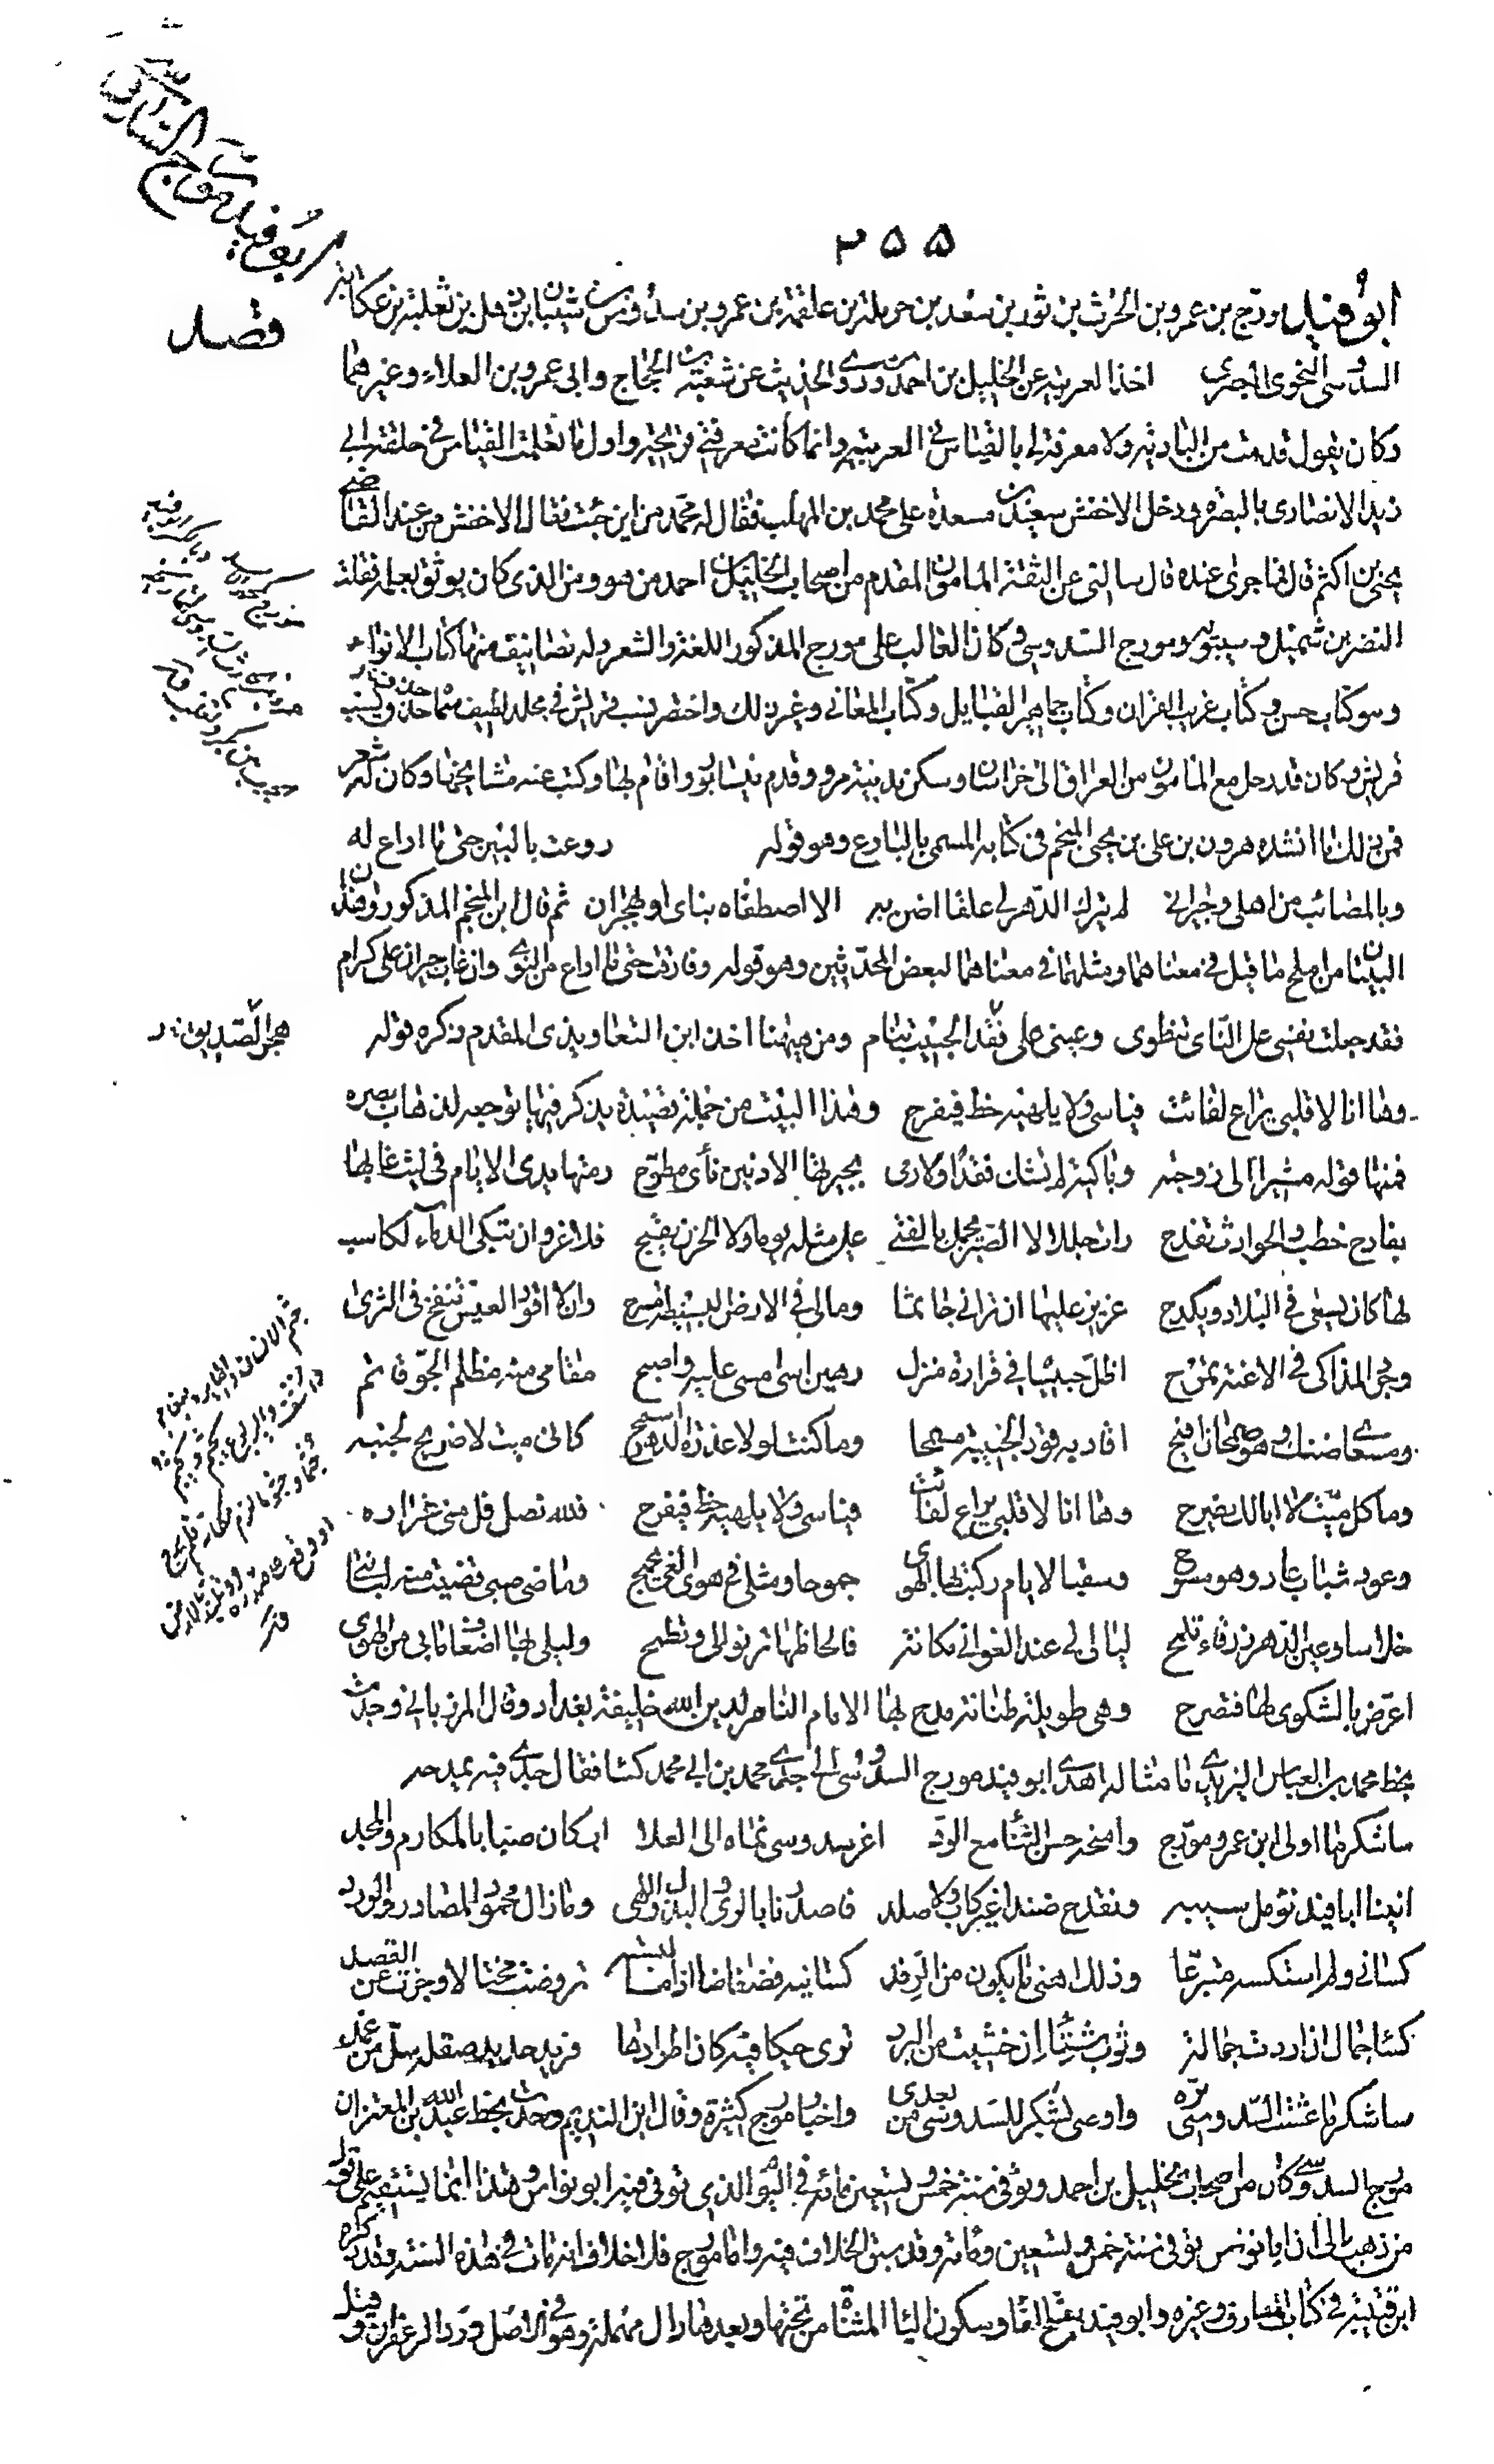 ابو فيد مورج السدوسي
٢٥٥
ابو فيد مورج بن عمرو بن الحرث بن ثور بن سعد بن حرملة بن علقمة بن عمرو بن سدوس بن شيبان بن ذهل بن ثعلبة بن عكابة
السدوسي النحوي البصري اخذ العربية عن الخليل بن احمد وروى الحديث عن شعبة بن الحجاج وابى عمرو بن العلاء وغيرهما
وكان يقول قدمت من البادية ولا معرفة لي بالقياس في العربية وانما كانت معرفتي قريحة واول ما تعلمت القياس في حلقة ابي
زيد الانصارى بالبصرة ودخل الاخفش سعيد بن مسعدة على محمد بن المهلب فقال له محمد من اين جئت فقال الاخفش من عند القاضي
يحيى بن اكثم قال فما جرى عنده قال سالني عن الثقة المامون المقدم من اصحاب الخليل بن احمد من هو ومن الذى كان يوثق بعلمه فقلت
النضر بن شميل وسيبويه ومورج السدوسي وكان الغالب على مورج المذكور اللغة والشعر وله تصانيف منها كتاب الانواء
وهو كتاب حسن وكتاب غريب القران وكتاب جماهير القبايل وكتاب المعاني وغير ذلك واختصر نسب قريش في مجلد لطيف سماه حذف نسب
قريش وكان قد رحل مع المامون من العراق الى خراسان وسكن مدينة مرو وقدم نيسابور واقام بها وكتب عنه مشايخها وكان له شعر
فمن ذلك ما انشده هرون بن على بن يحيى المنجم في كتابه المسمى بالبارع وهو قوله روعت بالبين حتى ما اراع له
وبالمصائب من اهلى وجيراني لم يترك الدهر لي علقا اضن به الا اصطفاه بناى او بهجران ثم قال ابن المنجم المذكور وهذان
البيتان من املح ما قيل في معناهما ومثلهما في معناهما لبعض المحدثين وهو قوله وفارقت حتى ما اراع من النوى وان غاب جيران على كرام
فقد جعلت نفسى على الناى تنطوى وعينى على فقد الحبيب تنام ومن هيهنا اخذ ابن التعاويذى المقدم ذكره قوله
هجر الصديق
وها انا لا قلبى يراع لفائت فياسى ولا يلهيه حظ فيفرح وهذا البيت من جملة قصيدة يذكر فيها توجعه لذهاب بصره
فمنها قوله مشيرا الى زوجته وباكية لم تشك فقدا ولا رمى بجيرتها الادنين نأى مطوح رمتها يدى الايام في ليث غابها
بفادح خطب والحوادث تفدح رات جللا لا الصبر يجمل بالفتى على مثله يوما ولا الحزن يقبح فلا غرو ان تبكى الدماء لكاسب
لها كان يسعى في البلاد ويكدح عزيز عليها ان تراني جاثما ومالى في الارض البسيطة مسرح وان لا اقود العيس تنفخ في الثرى
وجرد المذاكى في الاعنة تمرح اظل حبيسا في قرارة منزل رهين اسى امسى عليه واصبح مقامى منه مظلم الجو قاتم
ومسعاى ضنك وهو صحان افيح اقاد به قود الجنيبة مسمحا وما كنت لولا عذرة الدهر اسمح كاني ميت لا ضريح لجنبه
وما كل ميت لا ابالك يضرح وها انا لا قلبى يراع لفائت فياسى ولا يلهيه حظ فيفرح فلله نصل فل منى غراره
وعود شباب عاد وهو مصوح وسقيا لايام ركبت بها الهوى جموحا ومثلى في هوى الغيد يجمح وماضى صبى قضيت منه لبانتى
خلاسا وعين الدهر زرقاء تلمح ليالى لي عند الغواني مكانة فالحاظها ترنو الى وتطمح وليلى بها اضعاف مابى من الهوى
اعرض بالشكوى لها فتصرح وهى طويلة طنانة مدح بها الامام الناصر لدين الله خليفة بغداد وقال المرزباني وجدت
بخط محمد بن العباس اليزيدى ما مثاله اهدى ابو فيد مورج السدوسي الى جدى محمد بن ابي محمد كسا فقال جدى فيه يمدحه
ساشكر ما اولى ابن عمرو مورج وامنحه حسن الثنا مع الود اغر سدوسى نماه الى العلا اب كان صبا بالمكارم والمجد
اتينا ابا فيد نؤمل سيبه ونقدح زندا غير كاب ولا صلد فاصدرنا بالرى والبذل واللهى وما زال محمود المصادر والورد
كساني ولم استكسه متبرعا وذلك اهنى ما يكون من الرفد كسانيه فضفاضا اذا ما لبسته تروحت مختالا وجرت عن القصد
كسا جمال ان اردت جمالة وثوب شتاء ان خشيت من البرد ترى حبكا فيه كان اطرادها فرند حديد صقله سل من غمد
ساشكر ما عشت السدوسى بره واوصى بشكر للسدوسى من بعدى واخبار مورج كثيرة وقال ابن النديم وجدت بخط عبد الله بن المعتز ان
مورج السدوسى كان من اصحاب الخليل بن احمد وتوفى سنة خمس وتسعين ومائة في اليوم الذى توفى فيه ابو نواس وهذا انما يستقيم على قول
من ذهب الى ان ابا نواس توفى سنة خمس وتسعين ومائة وقد سبق الخلاف فيه واما مورج فلا خلاف انه مات في هذه السنة وقد ذكره
ابن قتيبة في كتاب المعارف وغيره وابو فيد بفتح الفا وسكون اليا المثناة من تحتها وبعدها دال مهملة وهو في الاصل ورد الزعفران وقيل